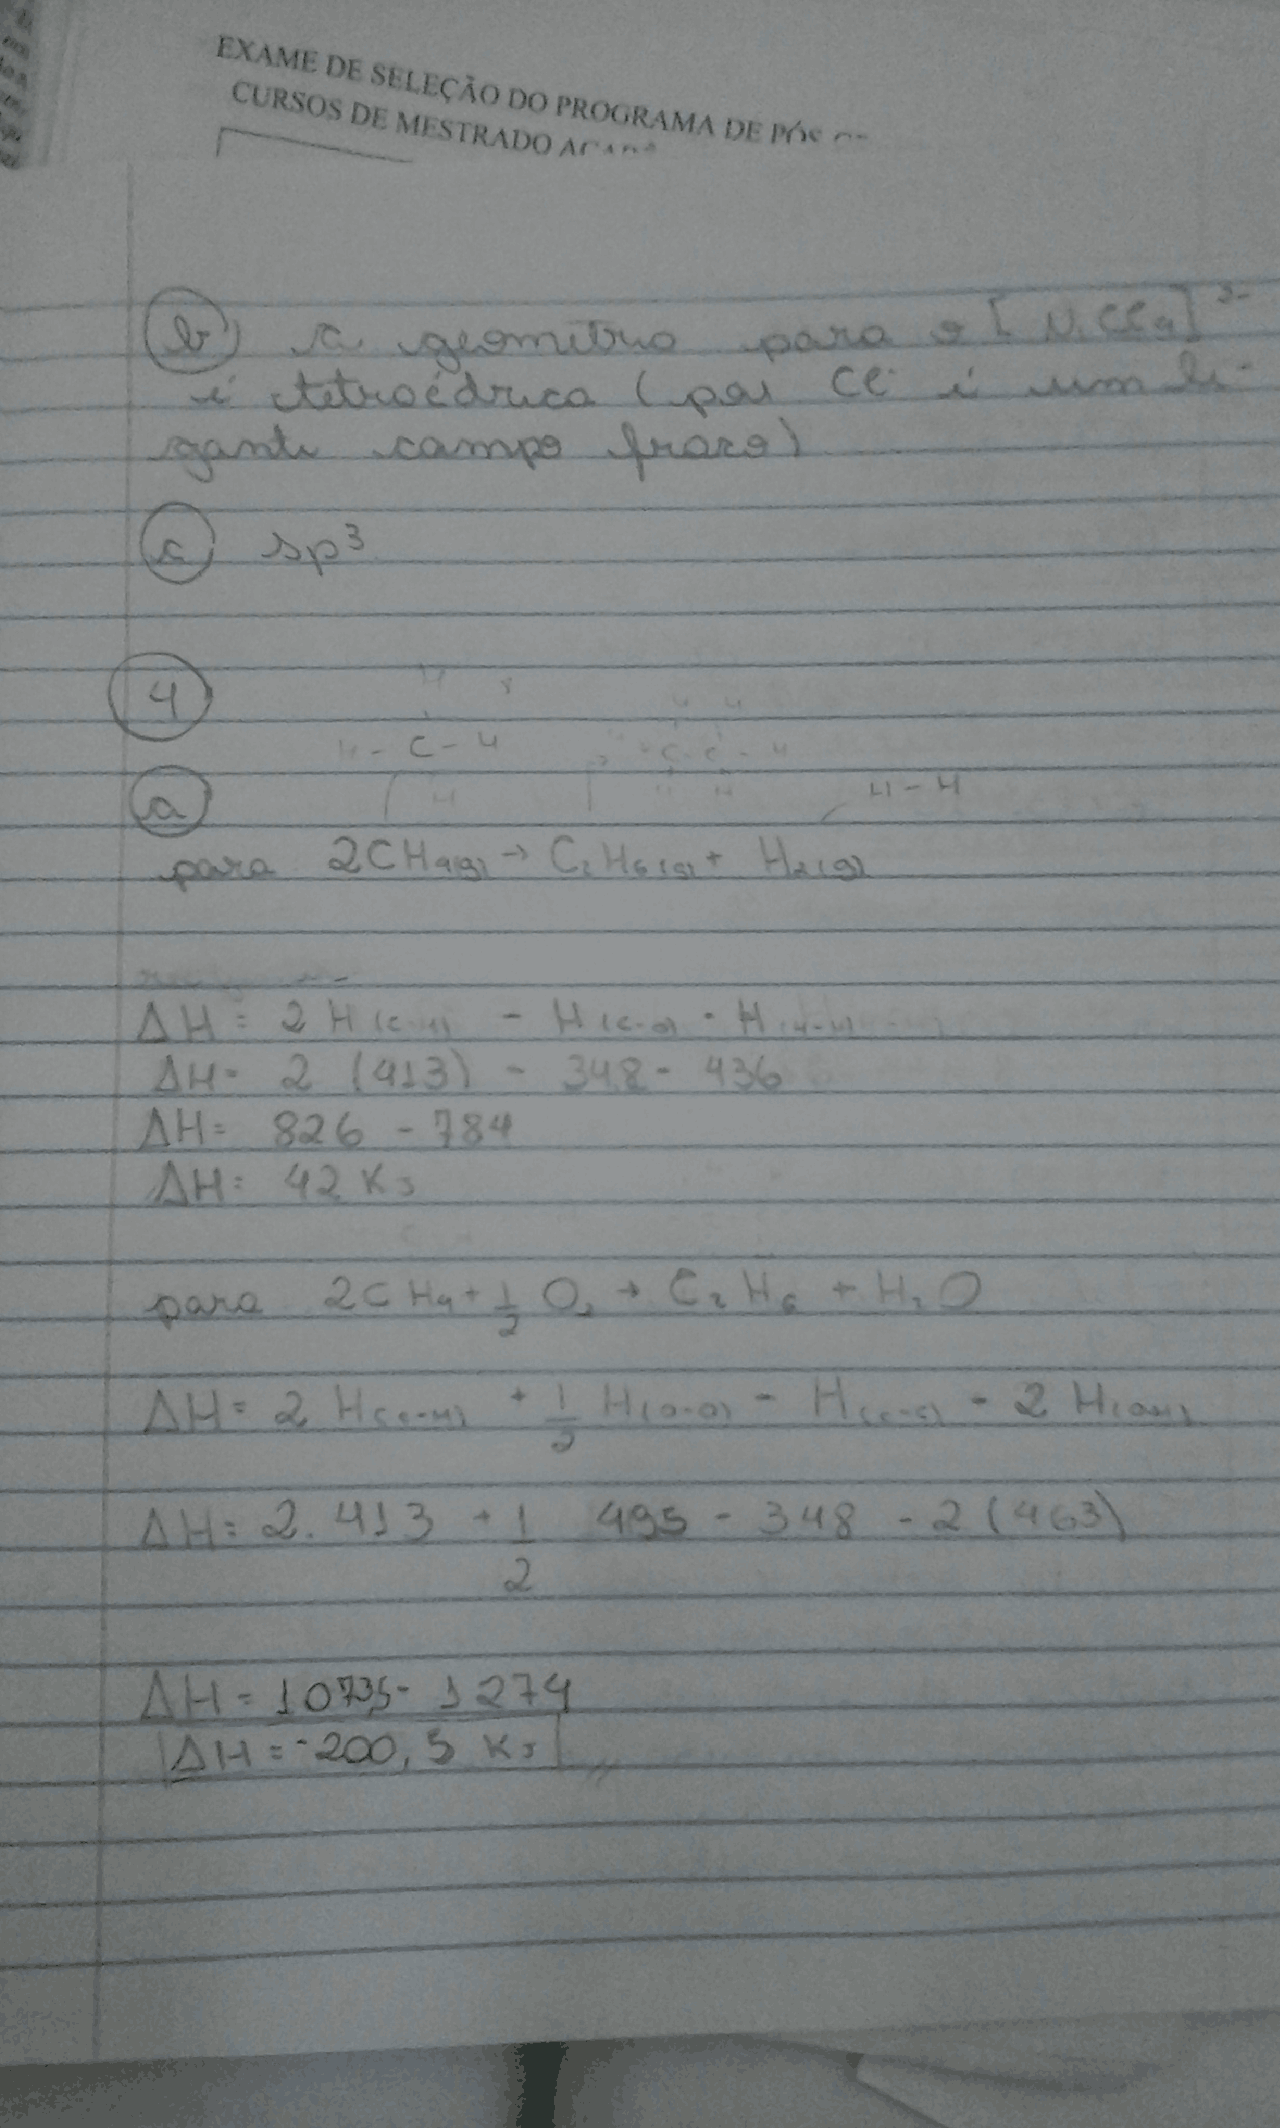 EXAME DE SELEÇÃO DO PROGRAMA DE PÓS
CURSOS DE MESTRADO
b) A geometria para o [NiCl4]
é tetraédrica (pois Cl- é um li-
gante campo fraco)
c) sp³
4
H
H - C - H
H
H H
H C - C - H
H H
H - H
a
para 2CH4(g) → C2H6(g) + H2(g)
ΔH = 2 H(C-H) - H(C-C) - H(H-H)
ΔH = 2 (413) - 348 - 436
ΔH = 826 - 784
ΔH = 42 KJ
para 2CH4 + 1/2 O2 → C2H6 + H2O
ΔH = 2 H(C-H) + 1/2 H(O-O) - H(C-C) - 2 H(O-H)
ΔH = 2. 413 + 1/2 495 - 348 - 2 (463)
ΔH = 1073,5 - 1274
ΔH = -200,5 KJ